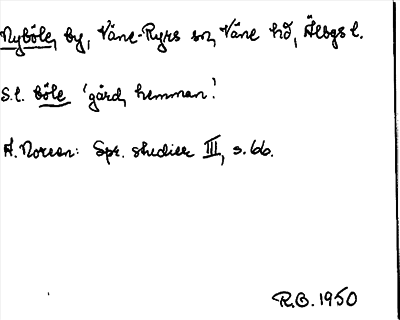 Nyböle, by, Väne-Ryrs sn, Väne hd, Älvbgs l.
S.l. böle 'gård, hemman'.
A. Noreen: Spr. studier III, s. 66.
R.B. 1950